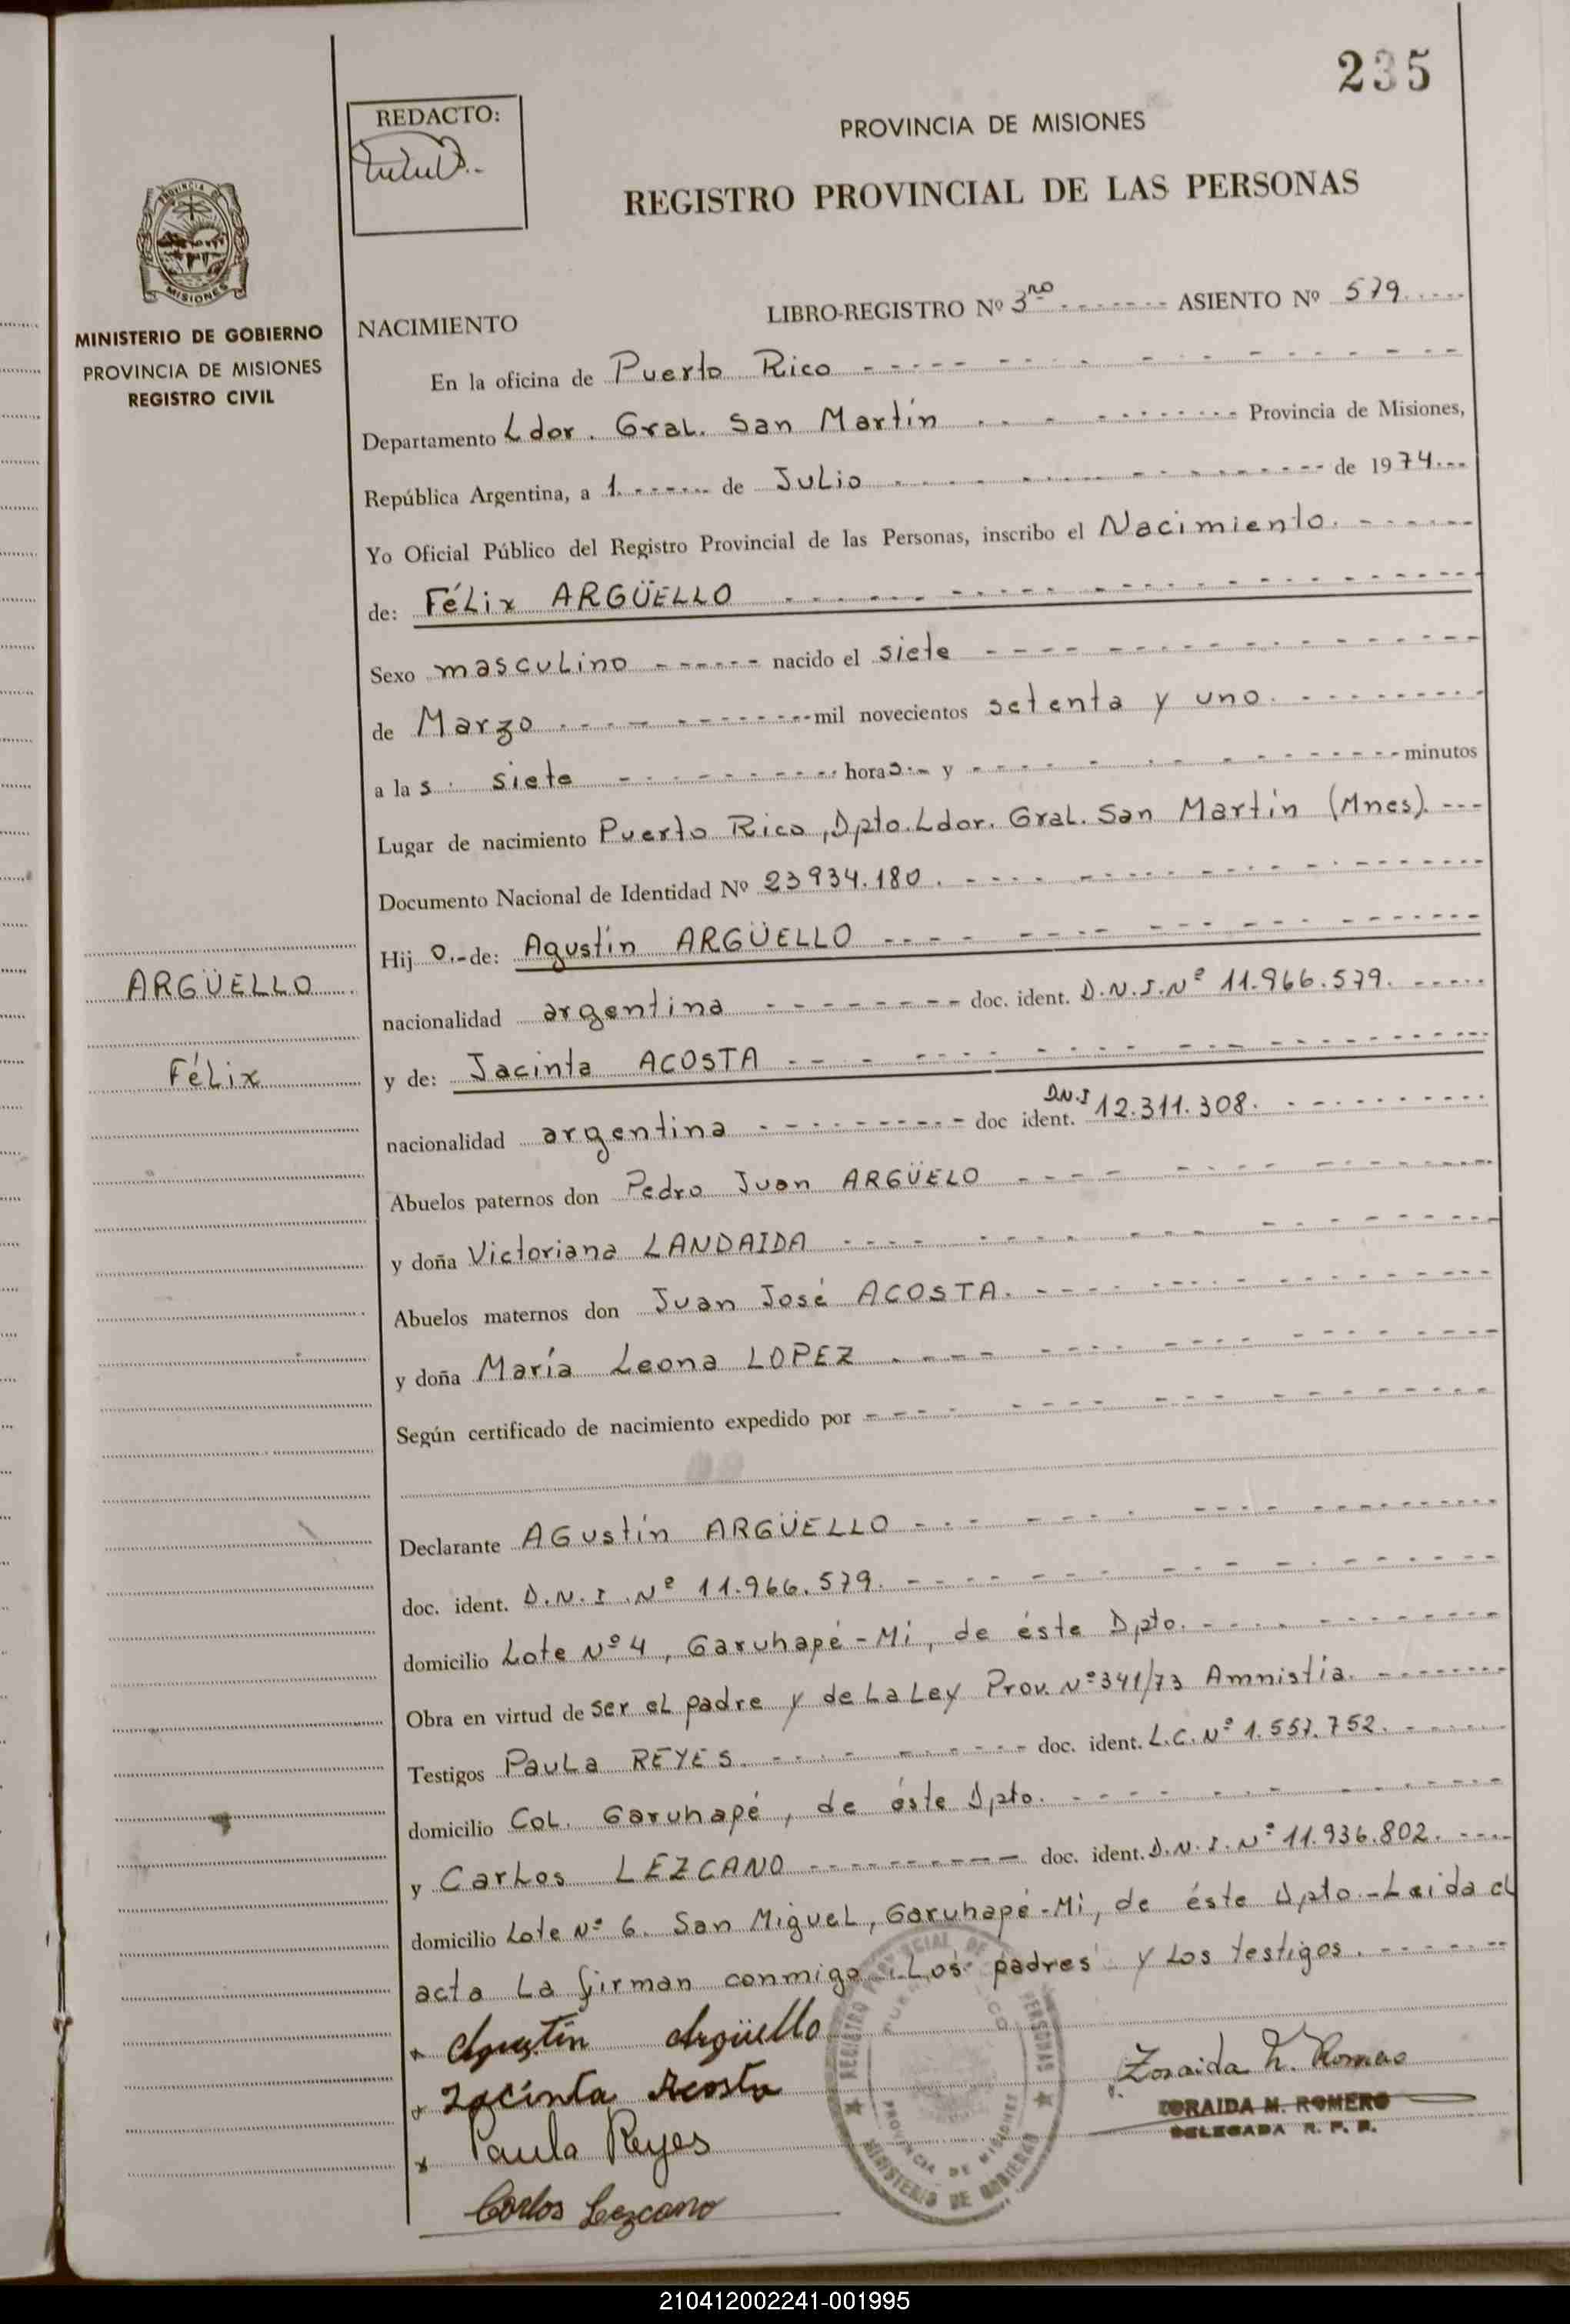 235
REDACTO:
PROVINCIA DE MISIONES
REGISTRO PROVINCIAL DE LAS PERSONAS
MINISTERIO DE GOBIERNO
PROVINCIA DE MISIONES
REGISTRO CIVIL
NACIMIENTO LIBRO-REGISTRO Nº 3ro ASIENTO Nº 579
En la oficina de Puerto Rico
Departamento Ldor. Gral. San Martín Provincia de Misiones,
República Argentina, a 1 de Julio de 1974
Yo Oficial Público del Registro Provincial de las Personas, inscribo el Nacimiento.
de: Félix ARGÜELLO
Sexo masculino nacido el siete
de Marzo mil novecientos setenta y uno.
a las siete horas y minutos
Lugar de nacimiento Puerto Rico, Dpto. Ldor. Gral. San Martín (Mnes).
Documento Nacional de Identidad Nº 23934.180.
Hijo.- de: Agustín ARGÜELLO
ARGÜELLO
nacionalidad argentina doc. ident. D.N.I. Nº 11.966.579.
Félix
y de: Jacinta ACOSTA
nacionalidad argentina doc ident. D.N.I 12.311.308.
Abuelos paternos don Pedro Juan ARGÜELO
y doña Victoriana LANDAIDA
Abuelos maternos don Juan José ACOSTA.
y doña María Leona LOPEZ
Según certificado de nacimiento expedido por
Declarante AGustín ARGÜELLO
doc. ident. D.N.I. Nº 11.966.579.
domicilio Lote Nº 4, Garuhapé-Mi, de éste Dpto.
Obra en virtud de ser el padre y de la Ley Prov. Nº 341/73 Amnistia.
Testigos Paula REYES. doc. ident. L.C. Nº 1.557.752.
domicilio Col. Garuhapé, de éste Dpto.
y Carlos LEZCANO doc. ident. D.N.I. Nº 11.936.802.
domicilio Lote Nº 6. San Miguel, Garuhapé-Mi, de éste Dpto.-Leida el
acta la firman conmigo Los padres y Los testigos.
Agustín Argüello
Jacinta Acosta
Paula Reyes
Carlos Lezcano
REGISTRO PROVINCIAL DE PERSONAS
PROVINCIA DE MISIONES
MINISTERIO DE GOBIERNO
Zoraida M. Romero
ZORAIDA M. ROMERO
DELEGADA R. P. P.
210412002241-001995